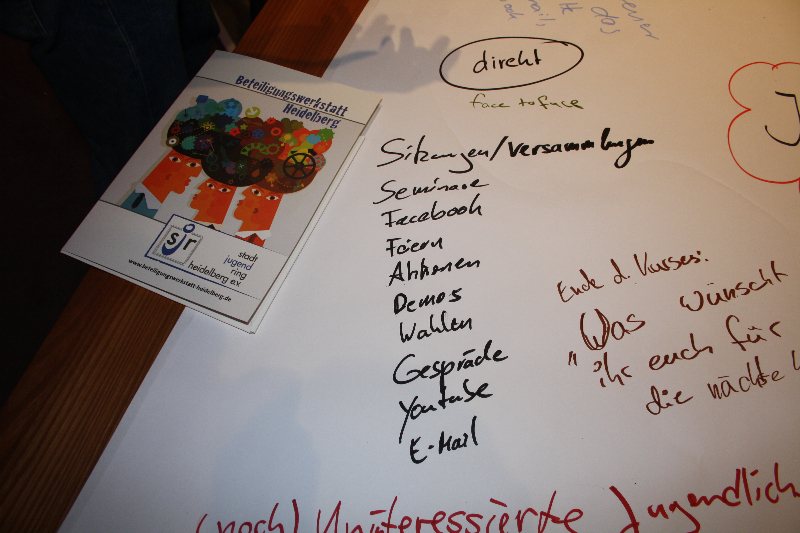 Beteiligungswerkstatt
Heidelberg
sjr
stadt
jugend
ring
heidelberg e.v.
www.beteiligungswerkstatt-heidelberg.de
das
direkt
face to face
Sitzungen/Versammlungen
Seminare
Facebook
Feiern
Aktionen
Demos
Wahlen
Gespräche
Youtube
E-Mail
Ende d. Kurses:
"Was wünscht
ihr euch für
die nächste
J
(noch) Uninteressierte Jugendlich